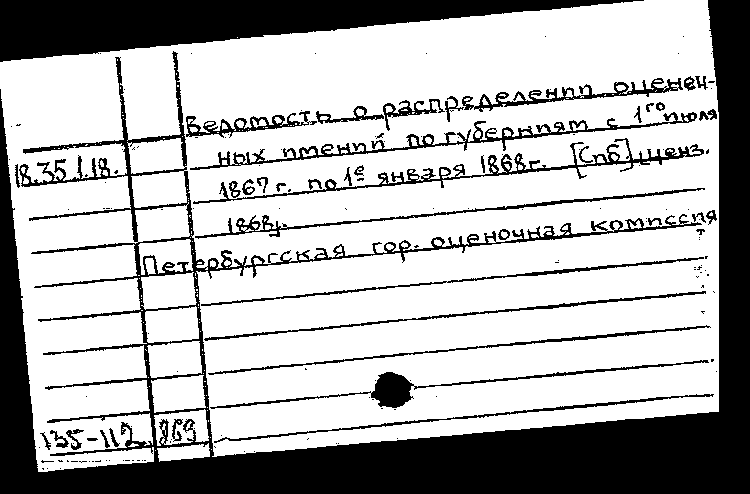 Ведомость о распределении оценен-
18.35.1.18.
ных имений по губерниям с 1го июля
1867 г. по 1е января 1868 г. [Спб] ценз.
1868г.
Петербургская гор. оценочная комиссия
135-112 869